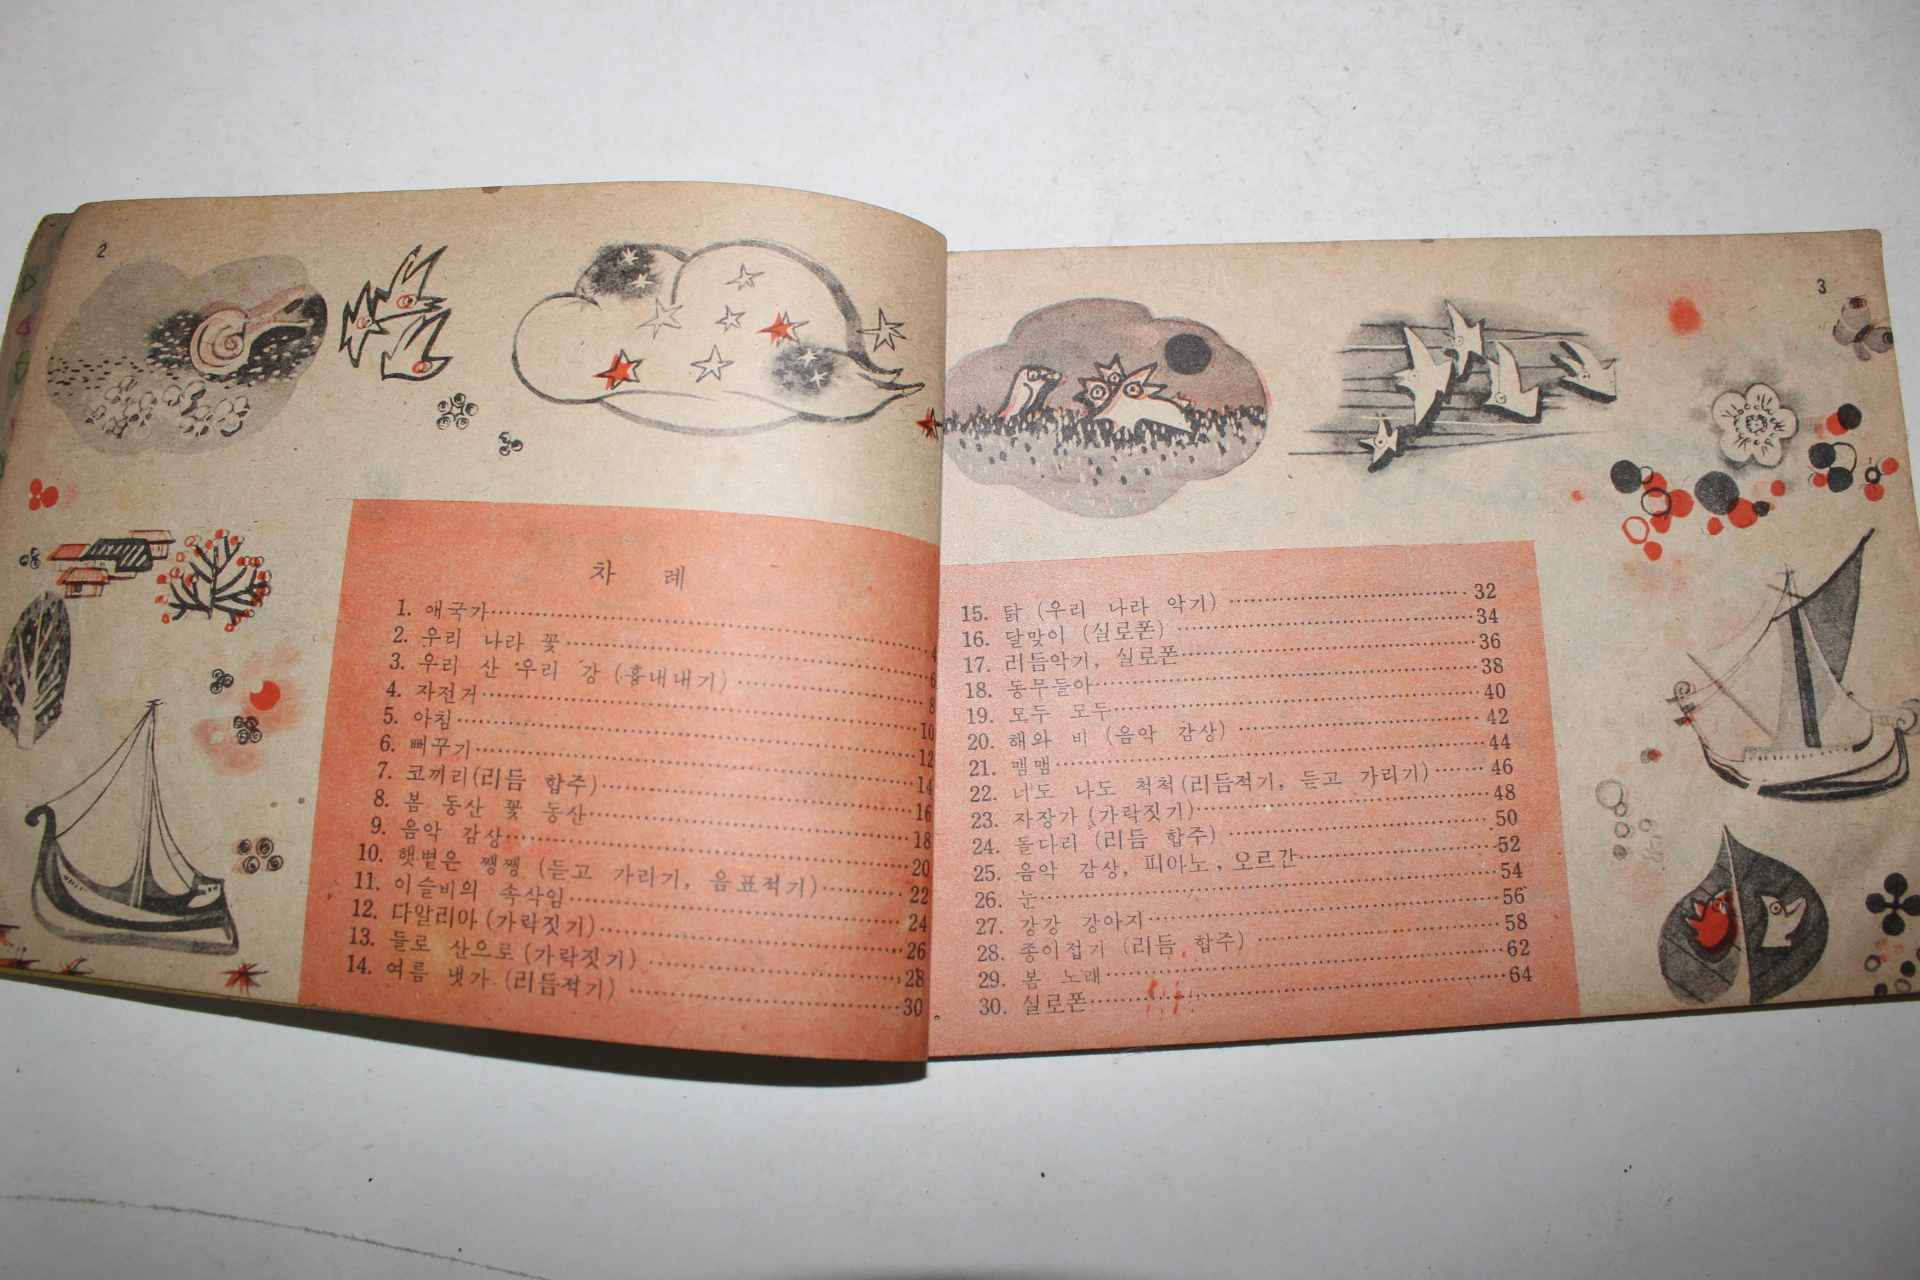 2
차 례
1. 애국가 4
2. 우리 나라 꽃 6
3. 우리 산 우리 강 (흉내내기) 8
4. 자전거 10
5. 아침 12
6. 뻐꾸기 14
7. 코끼리(리듬 합주) 16
8. 봄 동산 꽃 동산 18
9. 음악 감상 20
10. 햇볕은 쨍쨍 (듣고 가리기, 음표적기) 22
11. 이슬비의 속삭임 24
12. 다알리아 (가락짓기) 26
13. 들로 산으로 (가락짓기) 28
14. 여름 냇가 (리듬적기) 30
3
15. 닭 (우리 나라 악기) 32
16. 달맞이 (실로폰) 34
17. 리듬악기, 실로폰 36
18. 동무들아 38
19. 모두 모두 40
20. 해와 비 (음악 감상) 42
21. 맴맴 44
22. 너도 나도 척척(리듬적기, 듣고 가리기) 46
23. 자장가 (가락짓기) 48
24. 돌다리 (리듬 합주) 50
25. 음악 감상, 피아노, 오르간 52
26. 눈 54
27. 강강 강아지 56
28. 종이접기 (리듬 합주) 58
29. 봄 노래 62
30. 실로폰 64